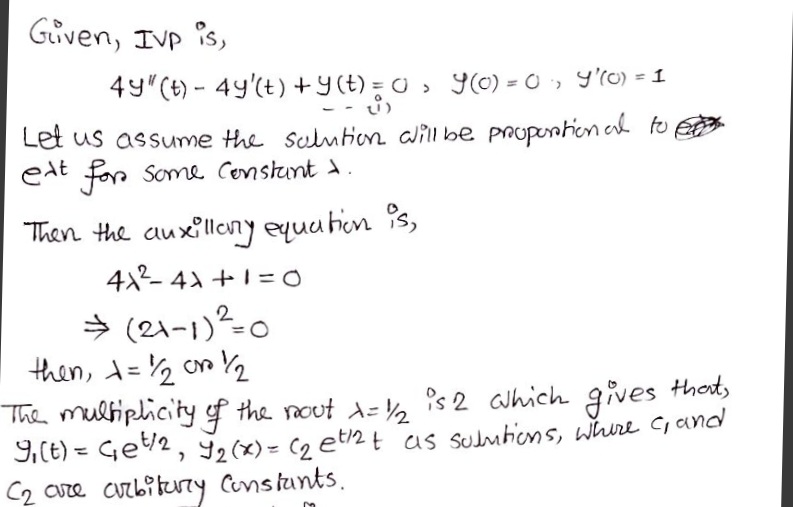 Given, IVP is,
4y"(t) - 4y'(t) + y(t) = 0, y(0) = 0, y'(0) = 1
-- (i)
Let us assume the solution will be proportional to
eλt for some constant λ.
Then the auxillary equation is,
4λ² - 4λ + 1 = 0
⇒ (2λ-1)² = 0
then, λ = 1/2 or 1/2
The multiplicity of the root λ = 1/2 is 2 which gives that,
y₁(t) = C₁e^t/2, y₂(x) = C₂ e^t/2 t as solutions, where C₁ and
C₂ are arbitury constants.